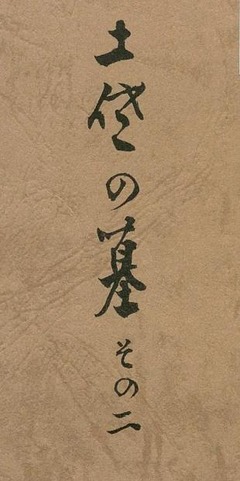 土佐の墓 その二